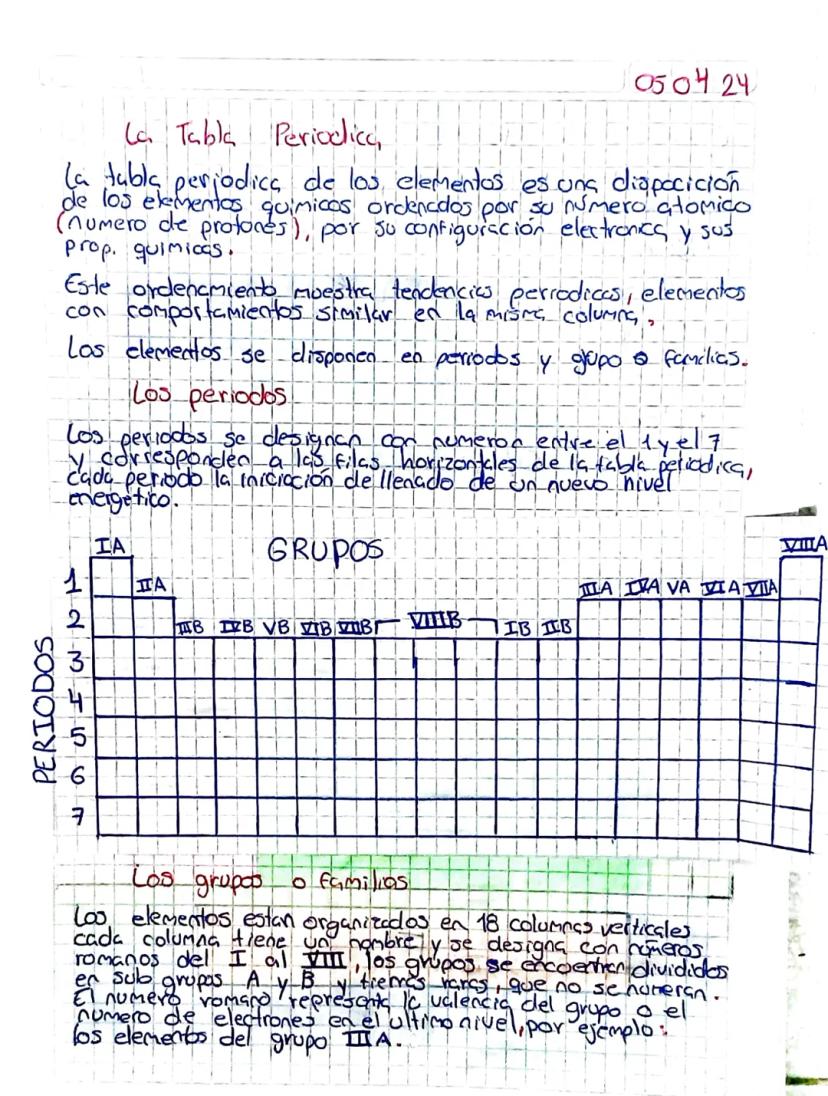 05 04 24
La Tabla Periodica
La tabla periodica de los elementos es una dispocición
de los elementos quimicos ordenados por su número atomico
(numero de protones), por su configuración electronica y sus
prop. quimicas.
Este ordenamiento muestra tendencias periodicas, elementos
con comportamientos similar en la misma columna,
Los elementos se disponen en periodos y grupo o familias.
Los periodos
Los periodos se designan con numeron entre el 1 y el 7
y corresponden a las filas horizontales de la tabla periodica,
cada periodo la iniciación de llenado de un nuevo nivel
energético.
GRUPOS
IA VIIIA
1 IIA IIIA IVA VA VIA VIIA
2 IIIB IVB VB VIB VIIB VIIIB IB IIB
3
4
5
6
7
PERIODOS
Los grupos o familias
Los elementos estan organizados en 18 columnas verticales
cada columna tiene un nombre y se designa con números
romanos del I al VIII, los grupos se encuentran divididos
en sub grupos A y B y tierras raras, que no se númeran.
El numero romano representa la valencia del grupo o el
número de electrones en el ultimo nivel, por ejemplo:
los elementos del grupo IIIA.